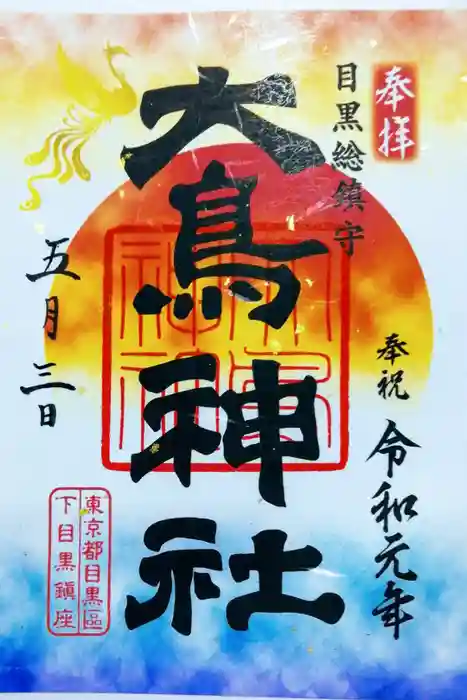 奉拝
目黒総鎮守
奉祝
令和元年
大鳥神社
五月三日
東京都目黒區
下目黒鎮座